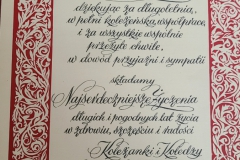 dziękując za długoletnią,
w pełni koleżeńską, współpracę,
i za wszystkie wspólnie
przeżyte chwile,
w dowód przyjaźni i sympatii
składamy
Najserdeczniejsze Życzenia
długich i pogodnych lat życia
w zdrowiu, szczęściu i radości
Koleżanki i Koledzy